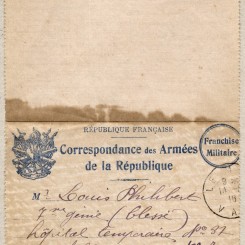 RÉPUBLIQUE FRANÇAISE
Correspondance des Armées
de la République
Franchise
Militaire
Mr Louis Philibert
génie (blessé)
hôpital temporaire No 37